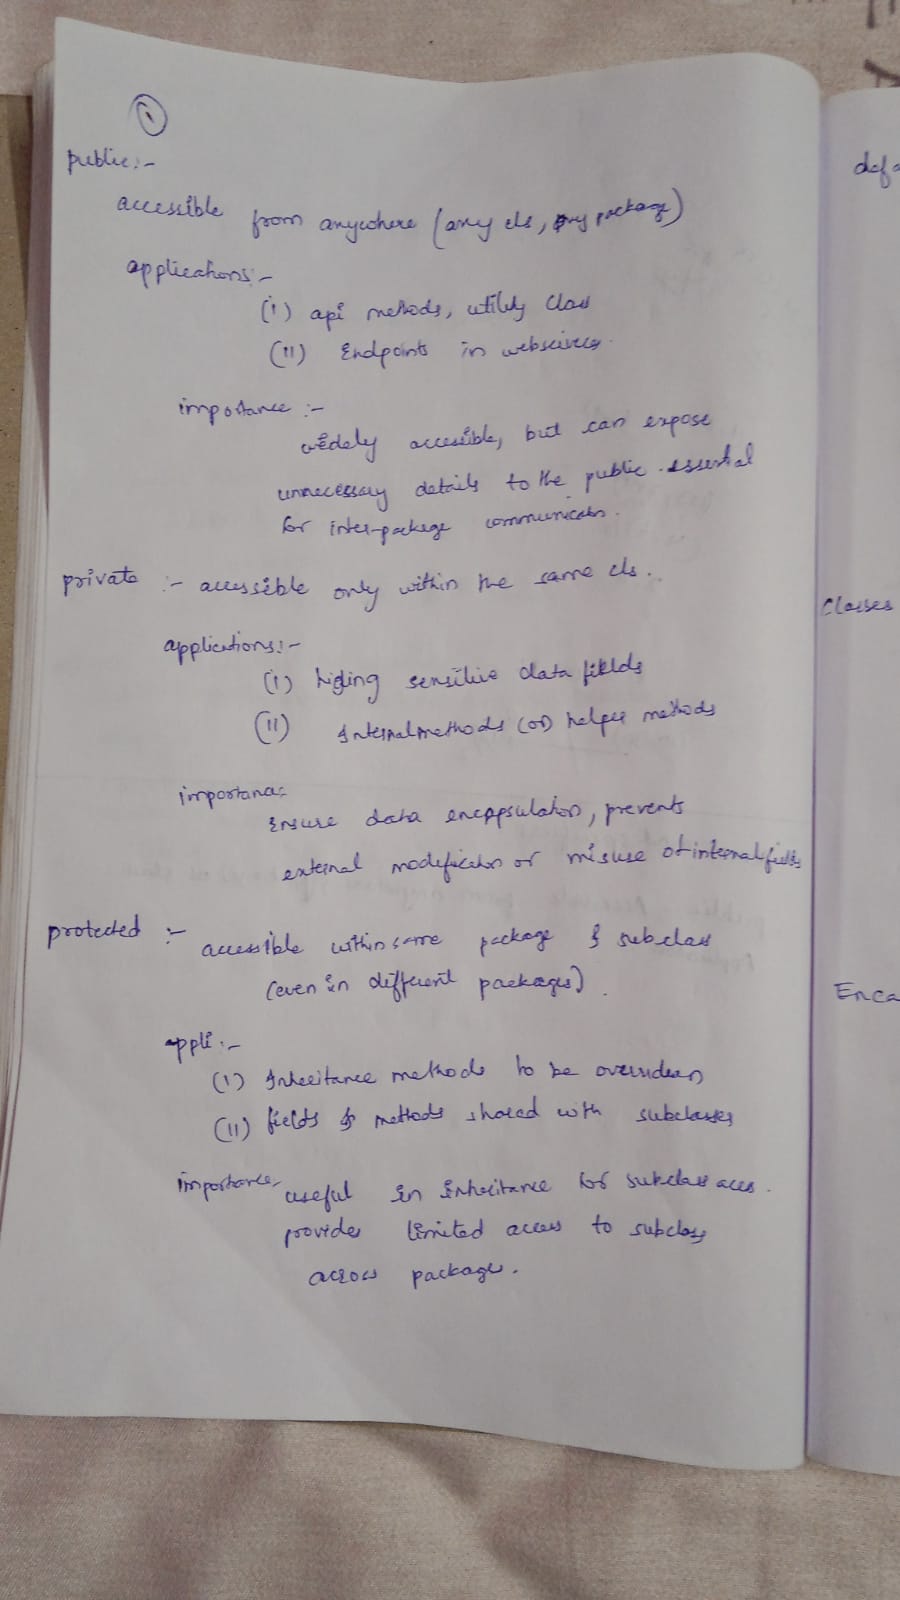 1
public :-
accessible from anywhere (any cls, any package)
applications :-
(i) api methods, utility class
(ii) Endpoints in webservices.
importance :-
widely accessible, but can expose
unnecessary details to the public. essential
for inter-package communication.
private :- accessible only within the same cls.
applications :-
(i) hiding sensitive data fields
(ii) Internal methods (or) helper methods
importance:
Ensure data encapsulation, prevents
external modification or misuse of internal fields
protected :- accessible within same package & subclass
(even in different packages).
appli :-
(i) Inheritance methods to be overridden
(ii) fields & methods shared with subclasses
importance, useful in inheritance for subclass acces.
provides limited access to subclass
across package.
defa
Classes
Enca